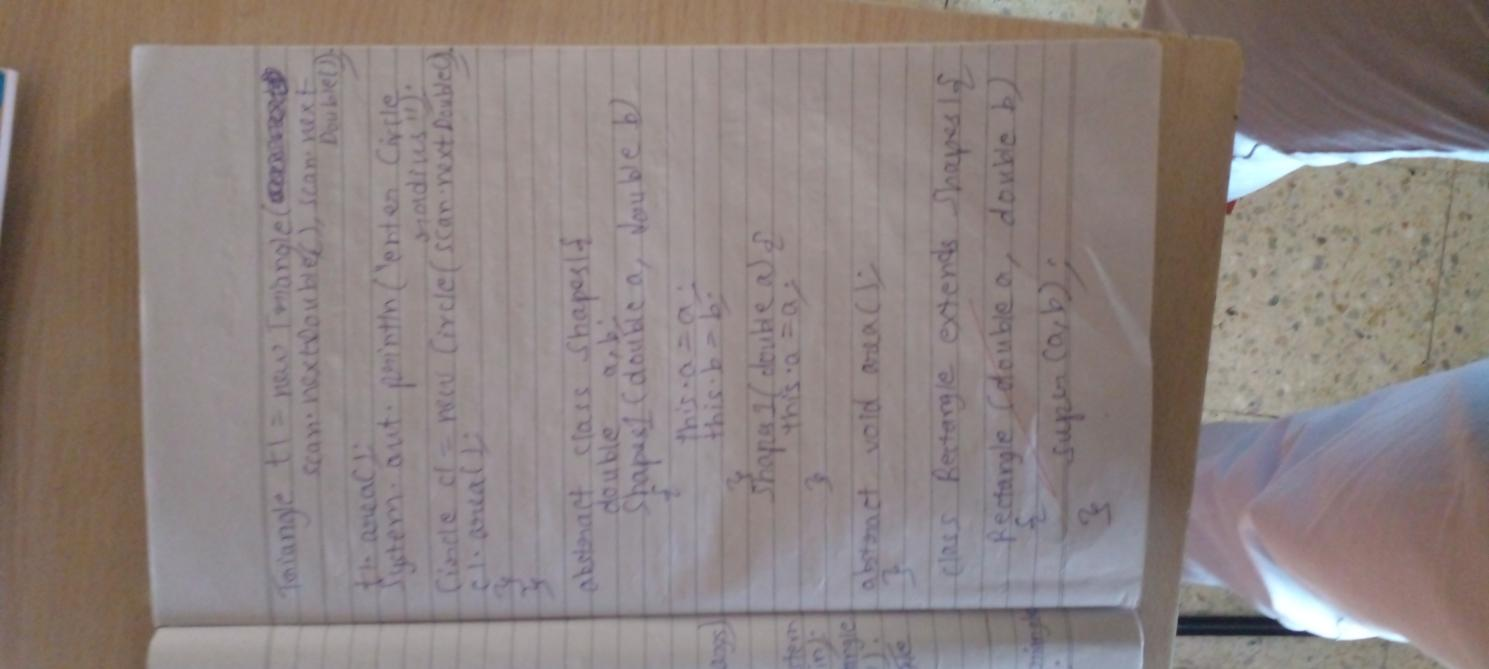 Triangle t1 = new Triangle(
scan.nextDouble(), scan.next
Double());
t1.area();
System.out.println("enter Circle
radius");
Circle c1 = new Circle(scan.nextDouble());
c1.area();
}
}
abstract class Shapes1{
double a,b;
Shapes1(double a, double b)
{
this.a = a;
this.b = b;
}
Shapes1(double a){
this.a = a;
}
abstract void area();
}
class Rectangle extends Shapes1{
Rectangle(double a, double b)
{
super(a,b);
}